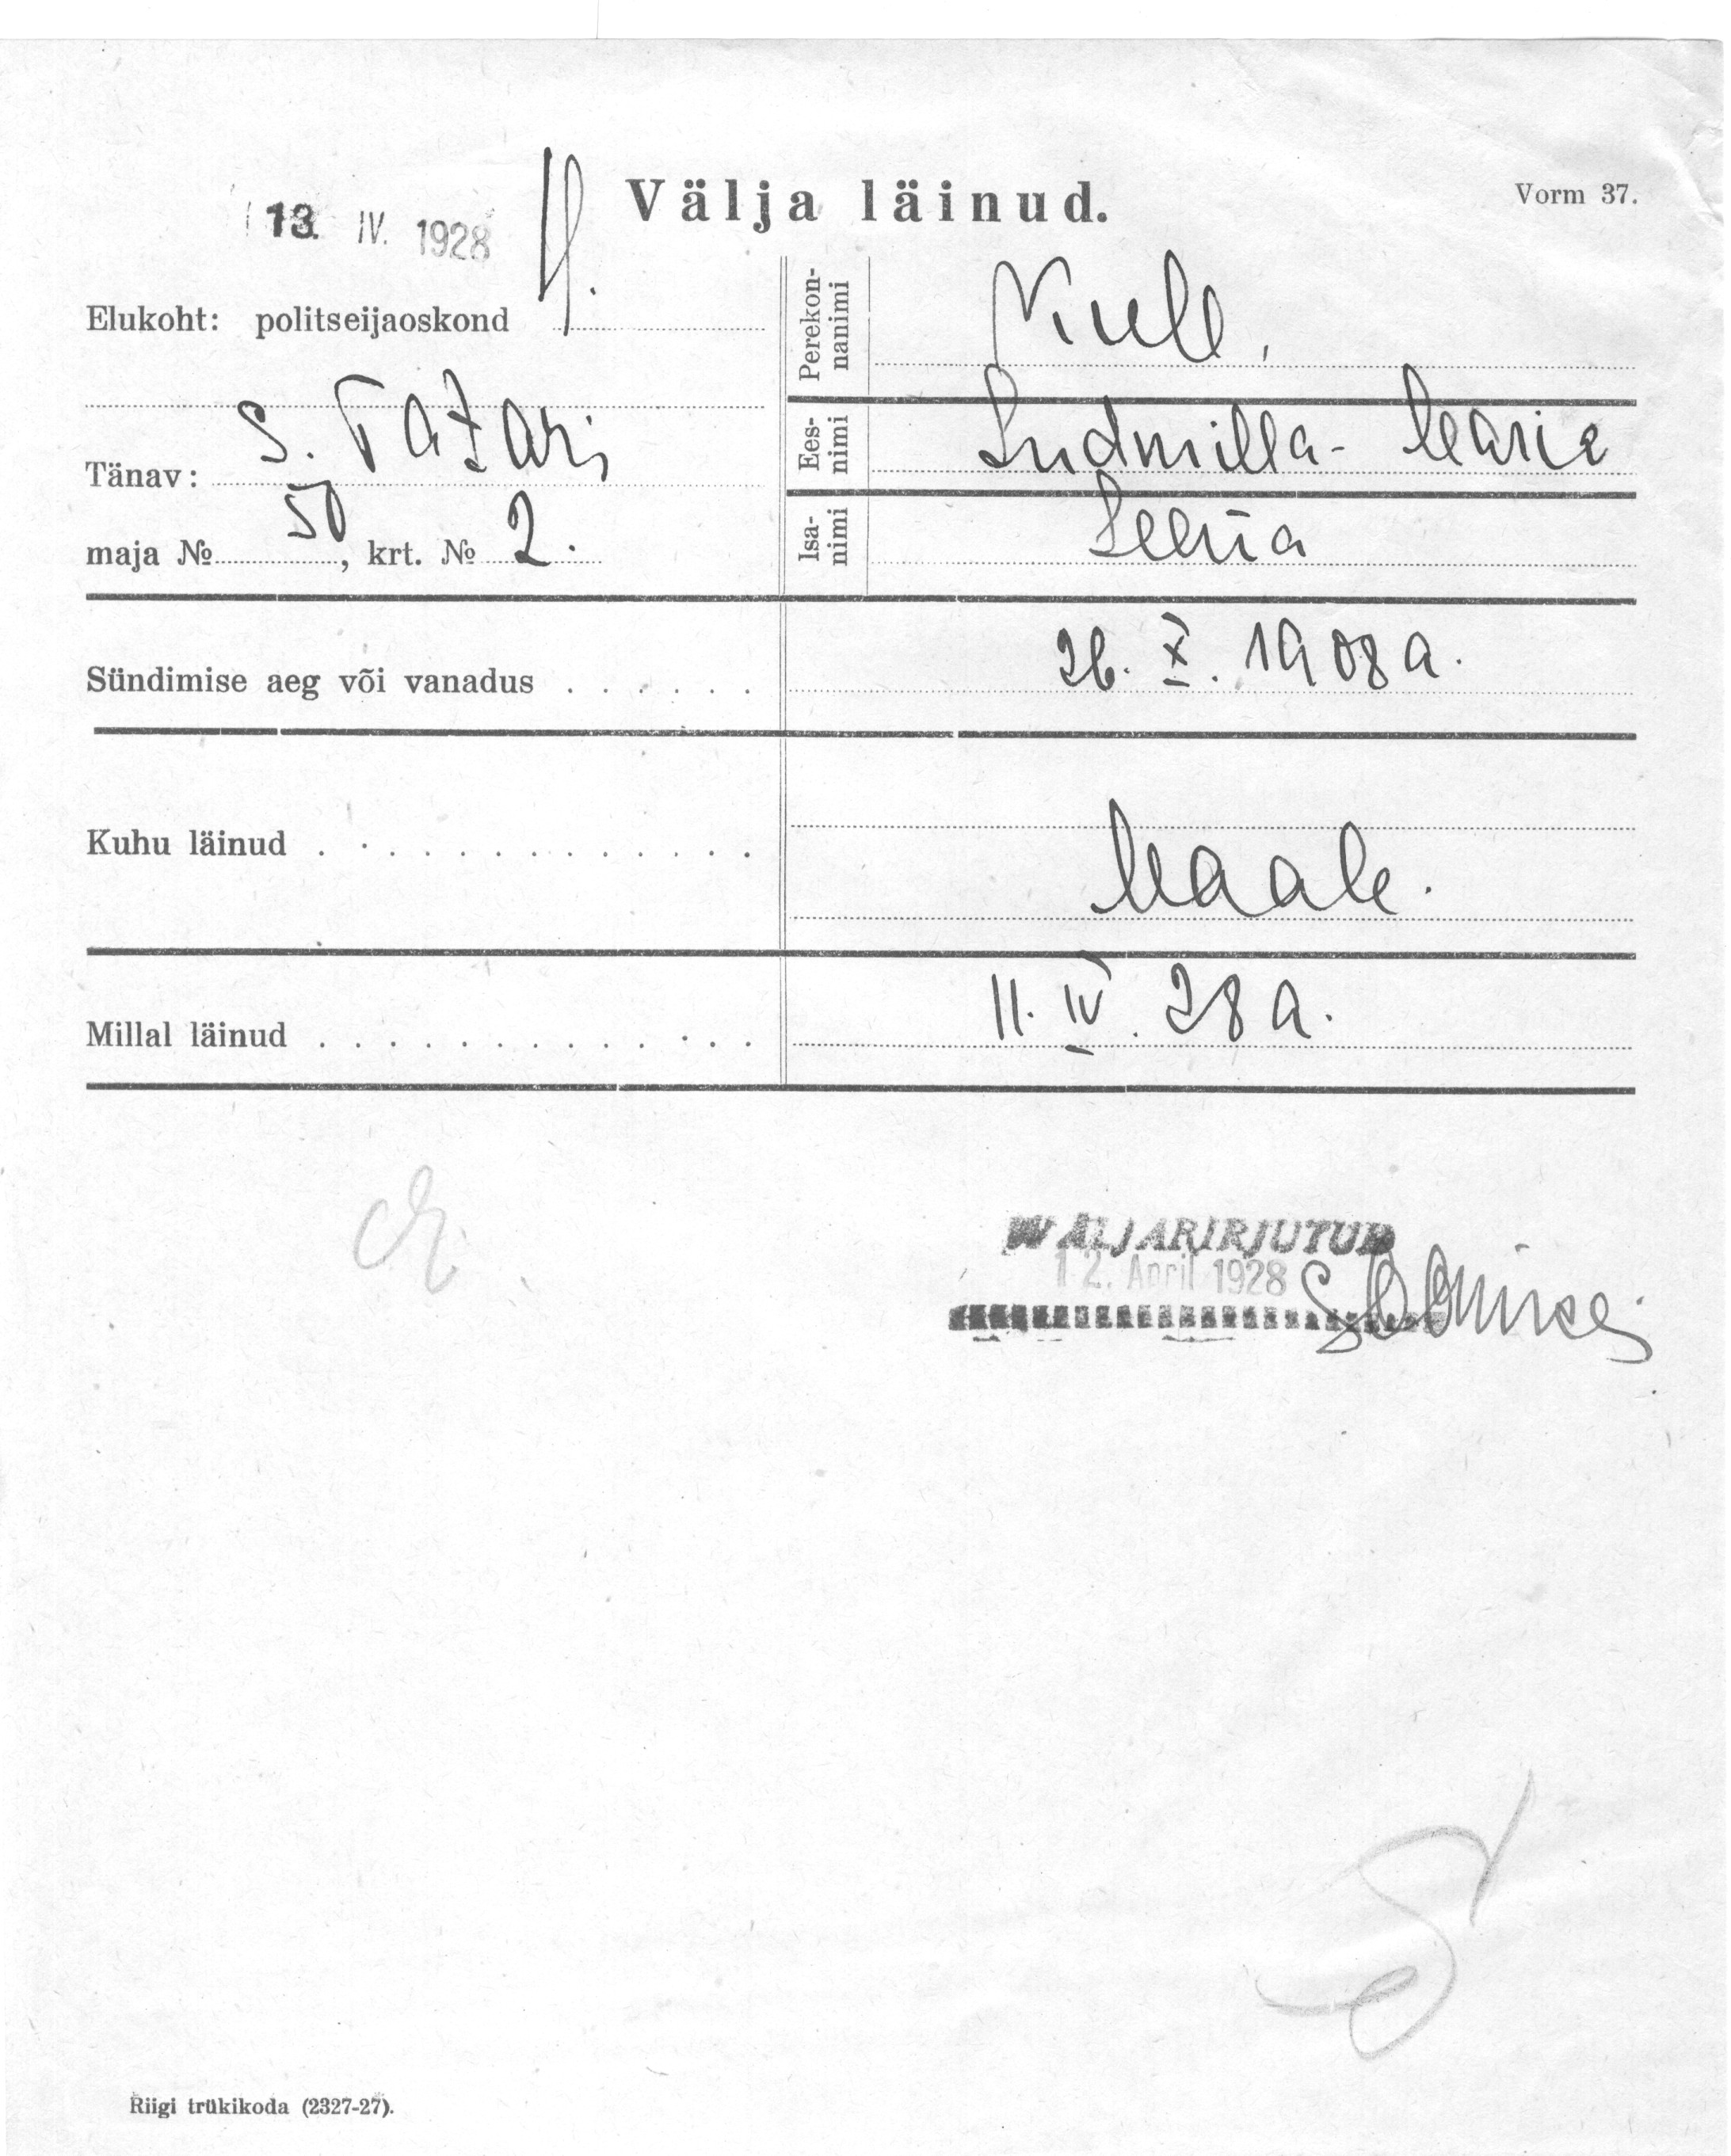 13. IV. 1928
Välja läinud.
Vorm 37.
Elukoht: politseijaoskond
Tänav: S. Tatari
maja № 50, krt. № 2.
Perekon-
nanimi
Ees-
nimi
Ludmilla-Marie
Isa-
nimi
Leena
Sündimise aeg või vanadus . . . . . . 26. X. 1908 a.
Kuhu läinud . . . . . . . . . . . . . Maale.
Millal läinud . . . . . . . . . . . . . 11. IV. 28 a.
WÄLJAKIRJUTUD
12. April 1928
Riigi trükikoda (2327-27).